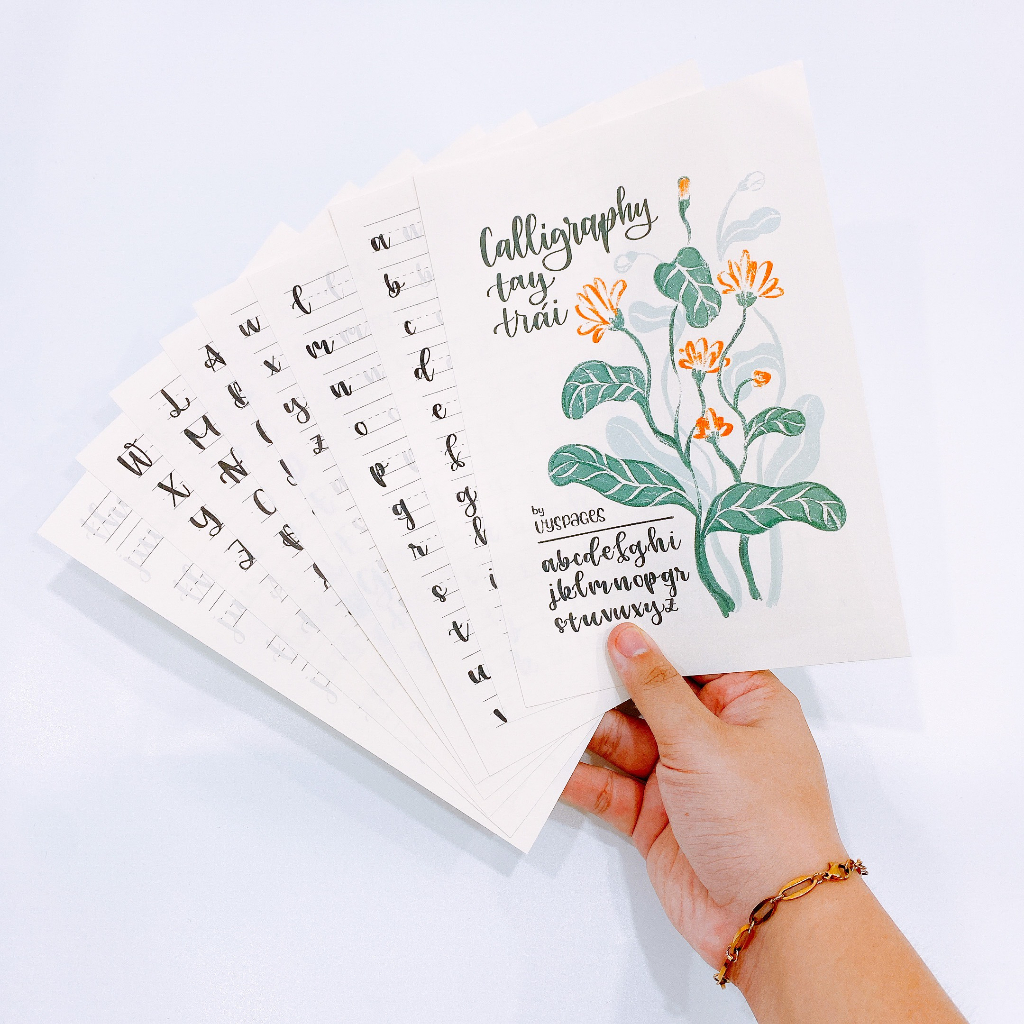 Calligraphy
tay
trái
by
VYSPAGES
abcdefghi
jklmnopqr
stuvwxyz
a
b
c
d
e
f
g
h
i
l
m
n
o
p
q
r
s
t
u
w
x
y
z
A
L
M
N
O
W
X
Y
Z